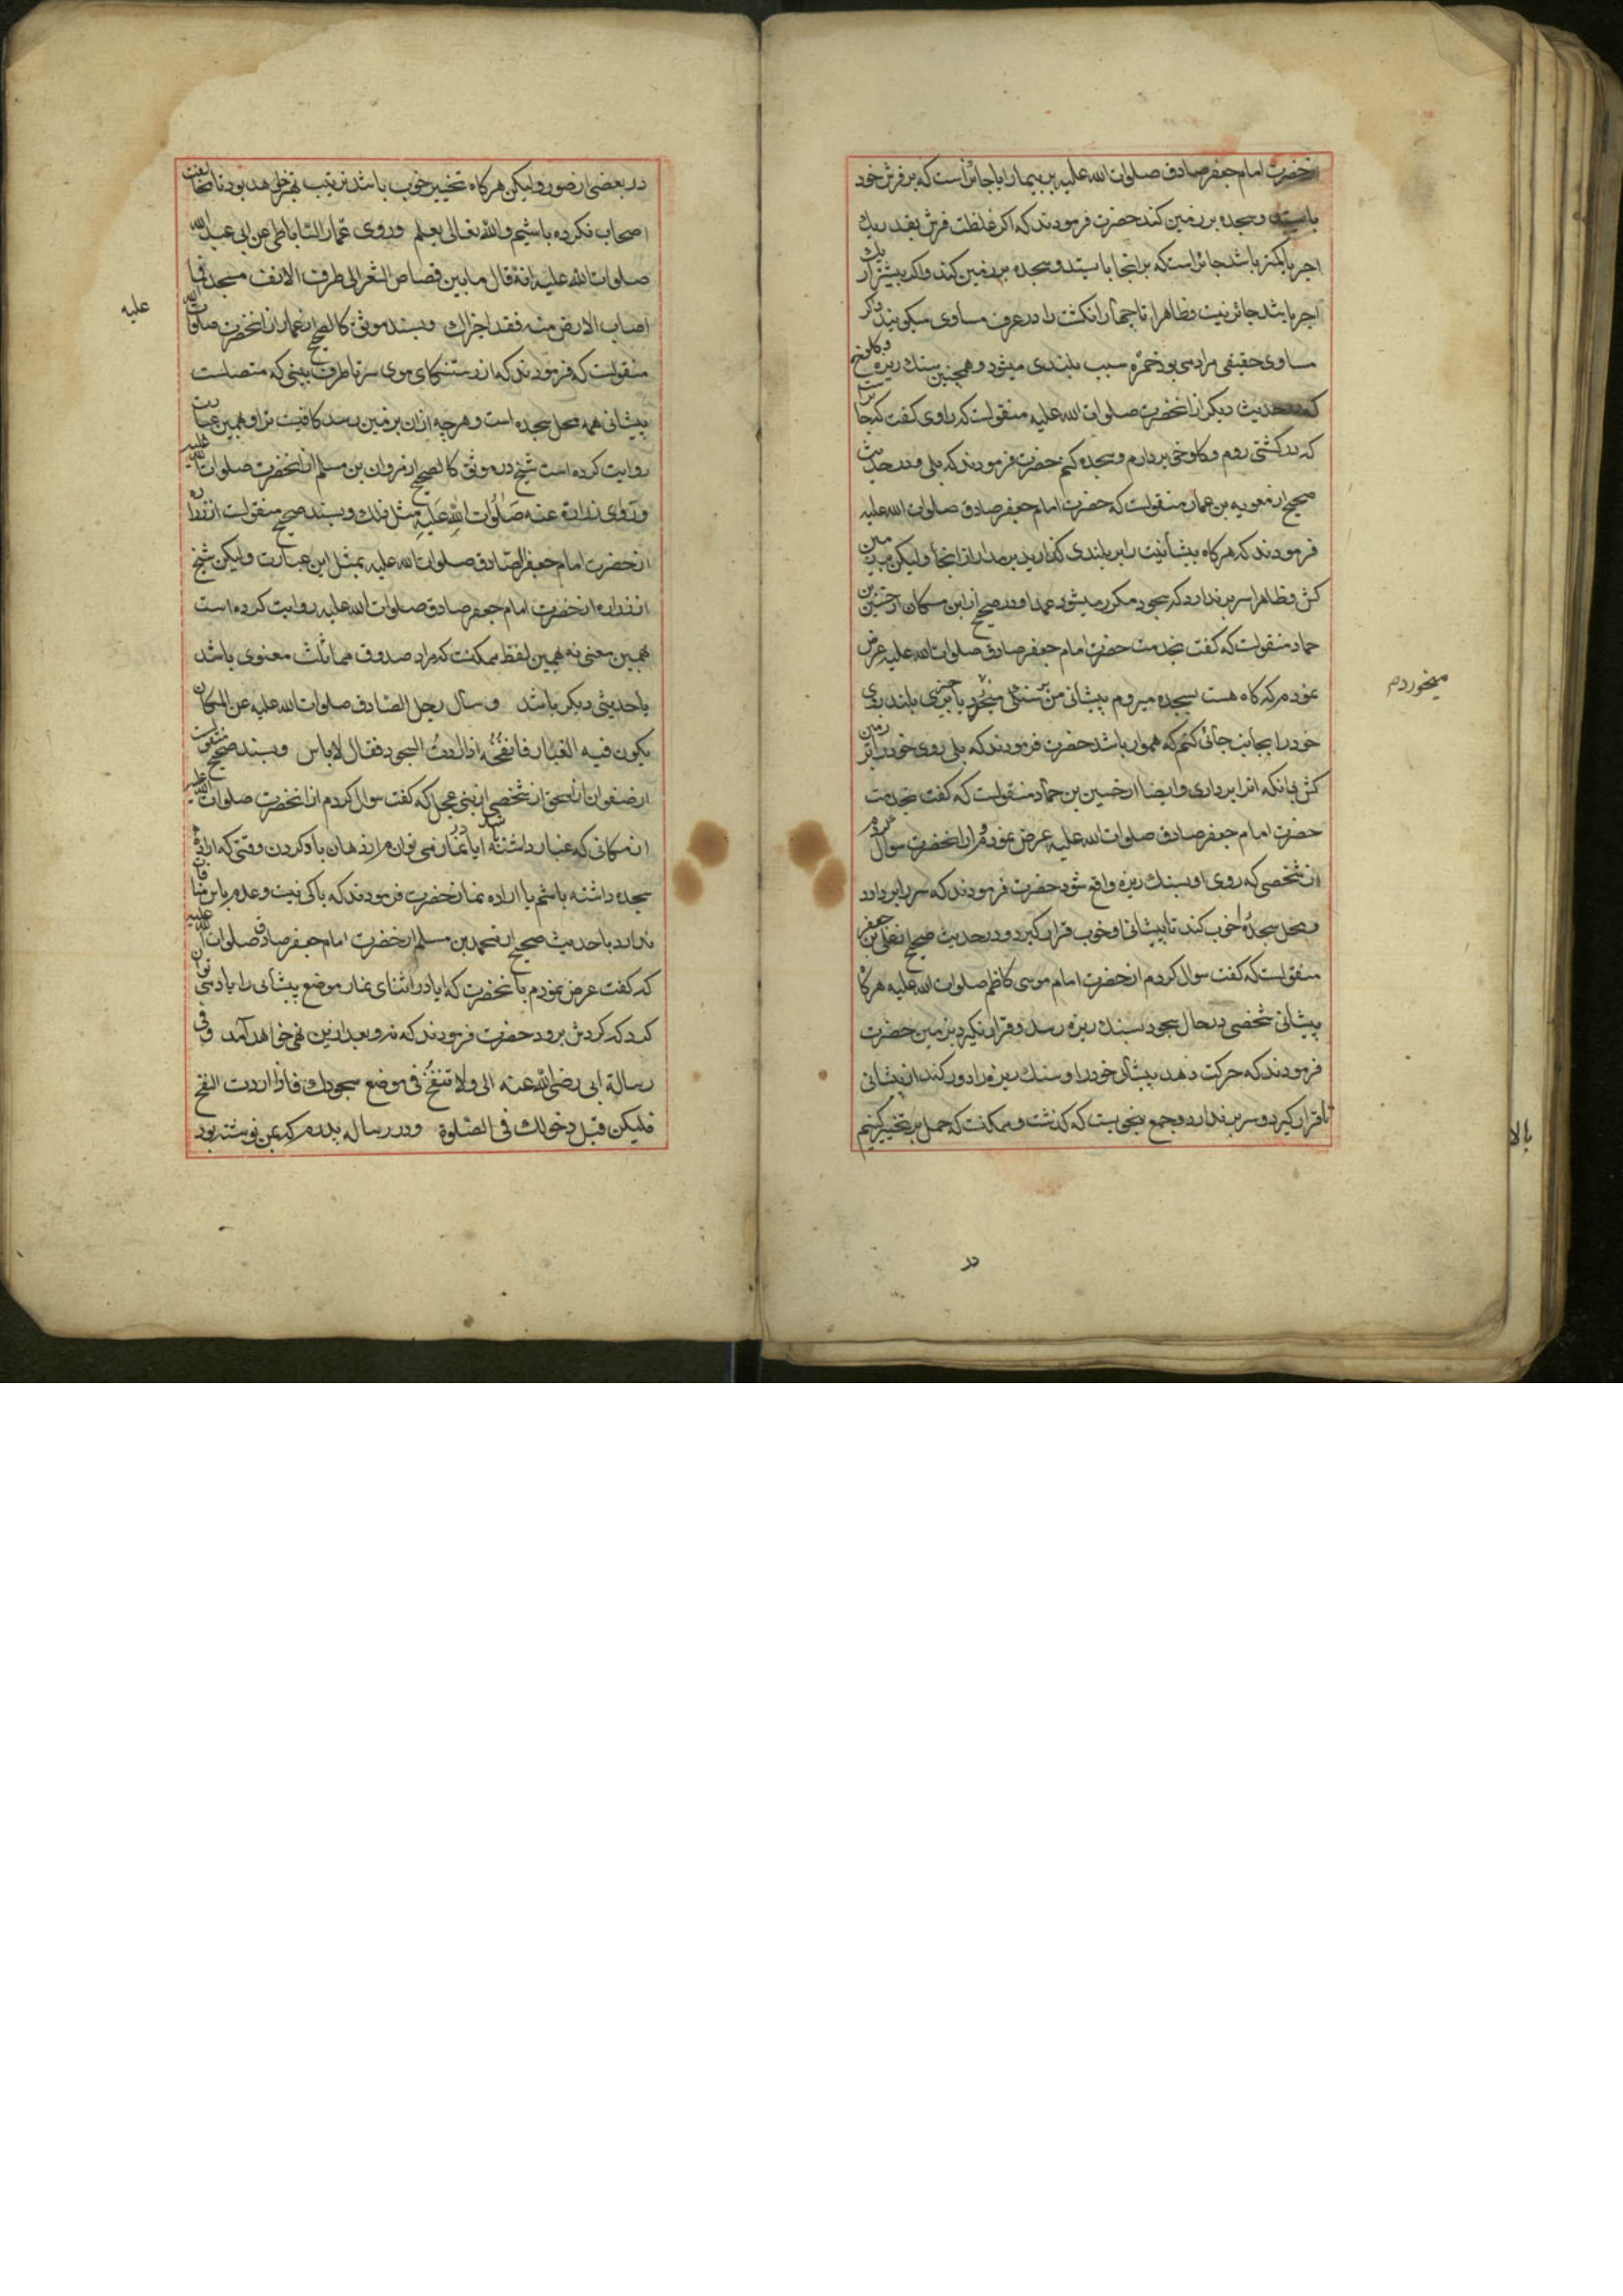 انحضرت امام جعفر صادق صلوات الله علیه بر بیمار ایا جائز است که بر فرش خود
بایستد و سجده بر زمین کند حضرت فرمودند که اکر غلظت فرش بقدر یک
اجر یا کمتر باشد جائز است که بر انجا بایستد و سجده بر زمین کند و اکر بیشتر از یک
اجر باشد جائز نیست و ظاهرا تا چهار انکشت را در عرف مساوی میکویند و اکر
مساوی حقیقی مراد می بود خمره سبب بلندی میشود و همچنین سنک ریزه و کلوخ
که در حدیث دیکر از انحضرت صلوات الله علیه منقولست که راوی کفت که
که در کشتی روم و کلوخی بردارم و سجده کنم حضرت فرمودند که بلی و در حدیث
صحیح از معویه بن عمار منقولست که حضرت امام جعفر صادق صلوات الله علیه
فرمودند که هر کاه پیشانیت را بر بلندی کذارید بر مدار از انجا ولیکن بر زمین
کش و ظاهرا سر بر ندارد که سجود مکرر میشود عمدا و در صحیح از ابن مسکان از حسین بن
حماد منقولست که کفت بخدمت حضرت امام جعفر صادق صلوات الله علیه عرض
نمودم که کاه هست بسجده میروم پیشانی من بر سنکی میخورد یا بر چیزی بلند روی
خود را بجانب جائی کنم که هموار باشد حضرت فرمودند که بلی روی خود را بر زمین
کش بی انکه انرا برداری و ایضا از حسین بن حماد منقولست که کفت بخدمت
حضرت امام جعفر صادق صلوات الله علیه عرض نمودم و از انحضرت سوال کردم
از شخصی که روی او بسنک ریزه واقع شود حضرت فرمودند که سر را بر دارد
و محل سجده را خوب کند تا پیشانی او خوب قرار کیرد و در حدیث صحیح از علی بن جعفر
منقولست که کفت سوال کردم از حضرت امام موسی کاظم صلوات الله علیه هر کاه
پیشانی شخصی در حال سجود بسنک ریزه رسد و قرار نکیرد بر زمین حضرت
فرمودند که حرکت دهد پیشانی خود را و سنک ریزه را دور کند از پیشانی
تا قرار کیرد و سر بر ندارد و جمع بنحوی است که کذشت و ممکنست که حمل بر تخییر کنیم
میخوردم
بالا
در
در بعضی از صور ولیکن هر کاه تخییر خوب باشد ترتیب بهتر خواهد بود تا مخالفت
اصحاب نکرده باشیم والله تعالی یعلم وروی عمار الساباطی عن ابی عبد الله
صلوات الله علیه انه قال ما بین قصاص الشعر الی طرف الانف مسجد فما
اصاب الارض منه فقد اجزاک و بسند موثق کالصحیح از عمار از انحضرت صلوات الله
علیه
منقولست که فرمودند که از رستنکای موی سر تا طرف بینی که متصلست
پیشانی همه محل سجده است و هر چه از ان بر زمین رسد کافیست ترا و همین عبارت
روایت کرده است شیخ در موثق کالصحیح از مروان بن مسلم از انحضرت صلوات الله علیه
وروی زرارة عنه صلوات الله علیه مثل ذلک و بسند صحیح منقولست از زراره
از حضرت امام جعفر الصادق صلوات الله علیه بمثل این عبارت ولیکن شیخ
از زراره از حضرت امام جعفر صادق صلوات الله علیه روایت کرده است
بهمین معنی نه بهمین لفظ ممکنست که مراد صدوق مماثلت معنوی باشد
یا حدیثی دیکر باشد وسأل رجل الصادق صلوات الله علیه عن المکان
یکون فیه الغبار فانفخه اذا اردت السجود فقال لا باس و بسند صحیح منقولست
از صفوان از اسحق از شخصی از بنی عجل که کفت سوال کردم از انحضرت صلوات الله علیه
از مکانی که غبار داشته باشد ایا در نماز می توانم از دهان باد کردن وقتی که اراده
سجده داشته باشم یا اراده نماز حضرت فرمودند که باکی نیست و عدم باس منافات
ندارد با حدیث صحیح از محمد بن مسلم از حضرت امام جعفر صادق صلوات الله علیه
که کفت عرض نمودم بانحضرت که ایا در اثنای نماز موضع پیشانی را باد می توان
کرد که کردش برود حضرت فرمودند که نه و بعد از این نهی خواهد آمد وفی
رسالة ابی رضی الله عنه الی ولا تنفخ فی موضع سجودک فاذا اردت النفخ
فلیکن قبل دخولک فی الصلوة و در رساله پدرم که بمن نوشته بود